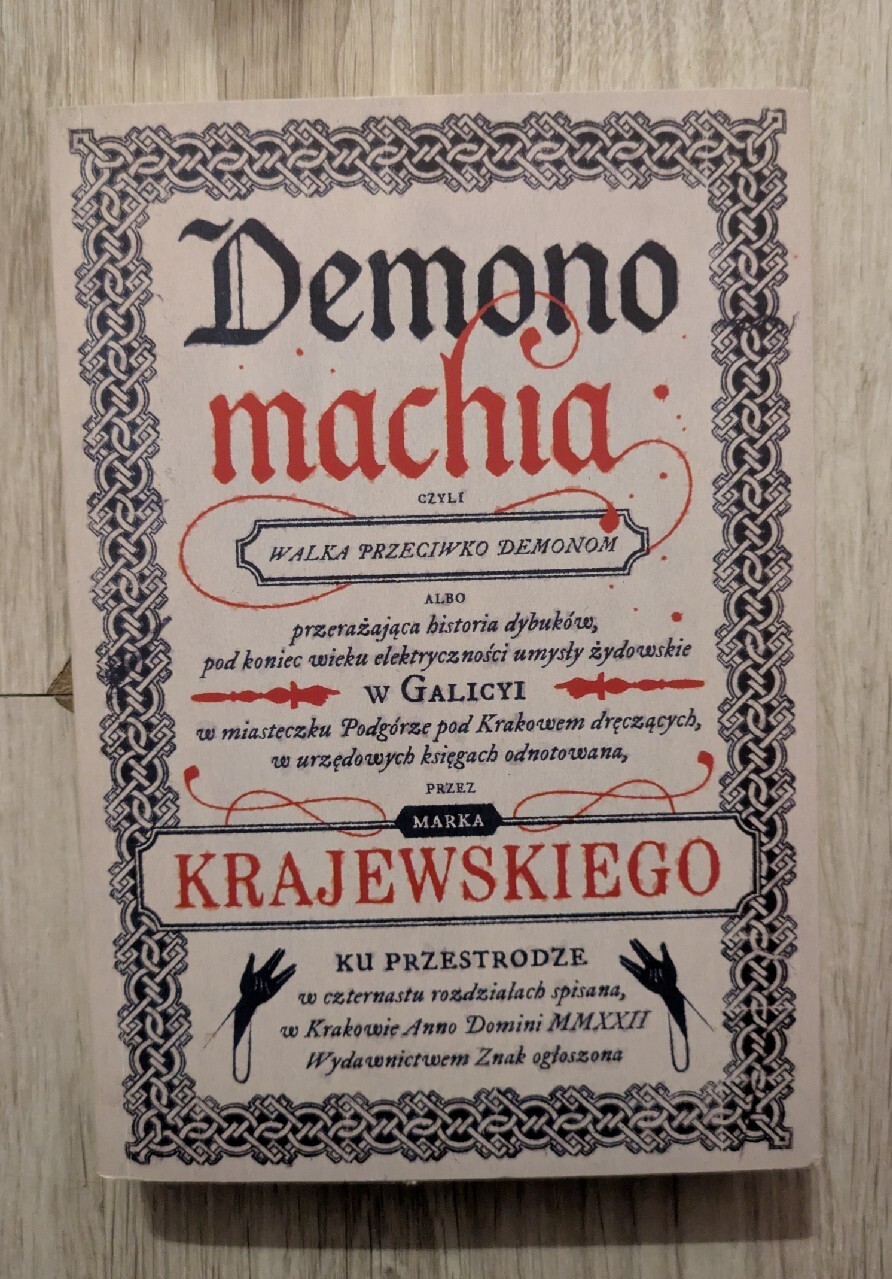 Demono
machia
CZYLI
WALKA PRZECIWKO DEMONOM
ALBO
przerażająca historia dybuków,
pod koniec wieku elektryczności umysły żydowskie
W GALICYI
w miasteczku Podgórze pod Krakowem dręczących,
w urzędowych księgach odnotowana,
PRZEZ
MARKA
KRAJEWSKIEGO
KU PRZESTRODZE
w czternastu rozdziałach spisana,
w Krakowie Anno Domini MMXXII
Wydawnictwem Znak ogłoszona